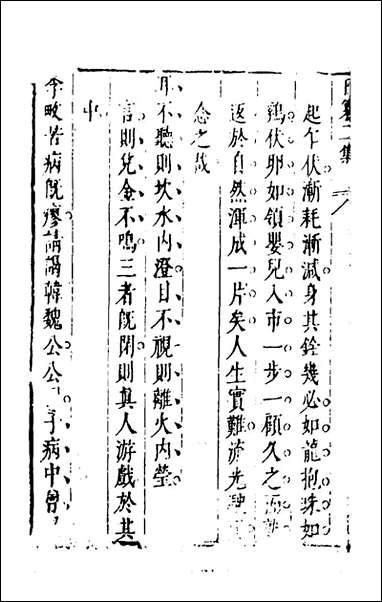 起乍伏漸耗漸減身其銓幾必如龍抱珠如
鷄伏卵如領嬰兒入市一步一顧久之
返於自然渾成一片矣人生實難流光
念之哉
耳不聽則坎水內澄目不視則離火內瑩
言則兌金不鳴三者旣閉則眞人游戲於其
中
李畋苦病旣瘳請謁韓魏公公 子病中曾